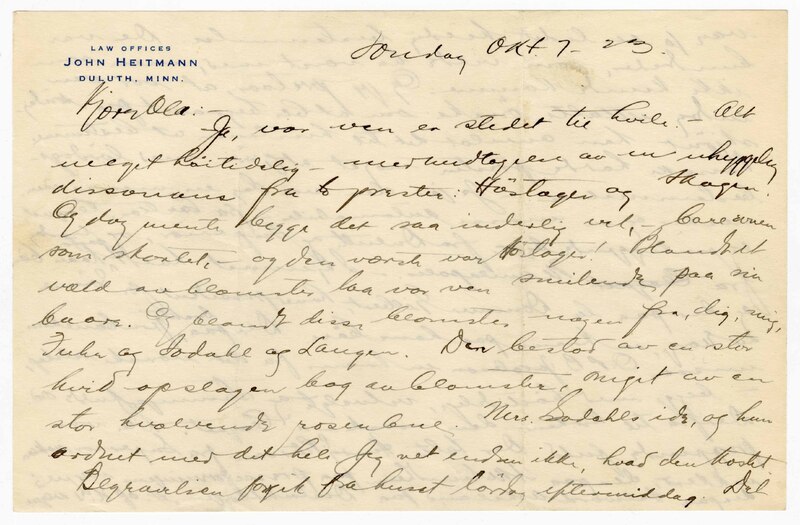 LAW OFFICES
JOHN HEITMANN
DULUTH, MINN.
Søndag Okt 7 - 23.
Kjære Ola: -
Ja, vor ven er stedet til hvile. - Alt
meget høitidelig - med undtagen av en uhyggelig
dissonans fra to prester: Høstager og Skagen.
Og dog mente begge det saa inderlig vel, - bare evnen
som skortet, - og den værste var Høstager! Blandt et
væld av blomster laa vor ven smilende paa sin
baare. Og blandt disse blomster nogen fra, dig, mig,
Fuhr og Sodahl og Langen. Den bestod av en stor
hvid opslagen bog av blomster, omgit av en
stor hvælvende rosenbue. Mrs. Sodahls ide, og hun
ordnet med det hele. Jeg vet endnu ikke, hvad den kostet
Begravelsen foregik fra huset lørdag eftermiddag. Det